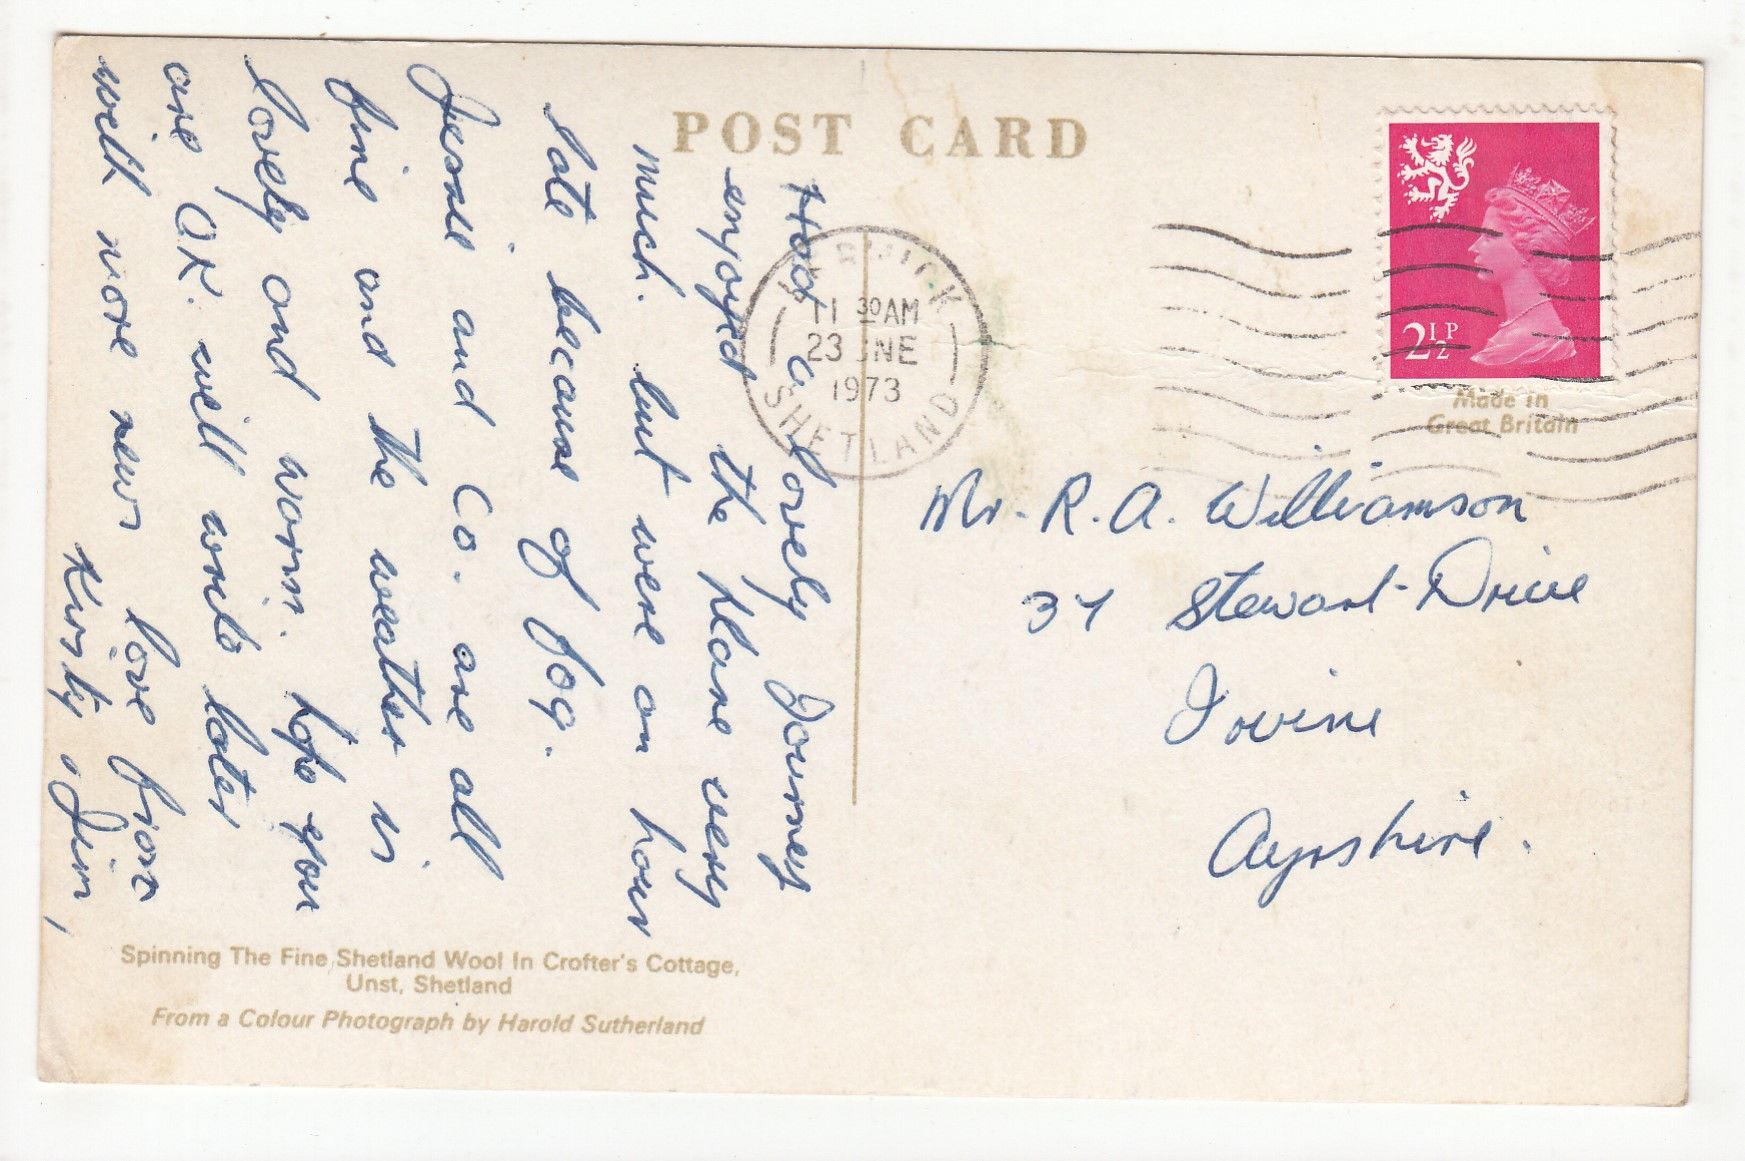 POST CARD
Had a lovely Journey
enjoyed the plane very
much. but were an hour
late because of fog.
Jessie and Co. are all
fine and the weather is
lovely and warm. hope you
are OK. will write later
with more news love from
Kirsty, Jim,
Spinning The Fine Shetland Wool In Crofter's Cottage,
Unst, Shetland
From a Colour Photograph by Harold Sutherland
LERWICK
11 30AM
23 JNE
1973
SHETLAND
2½P
Made in
Great Britain
Mr. R. A. Williamson
37 Stewart Drive
Irvine
Ayrshire.